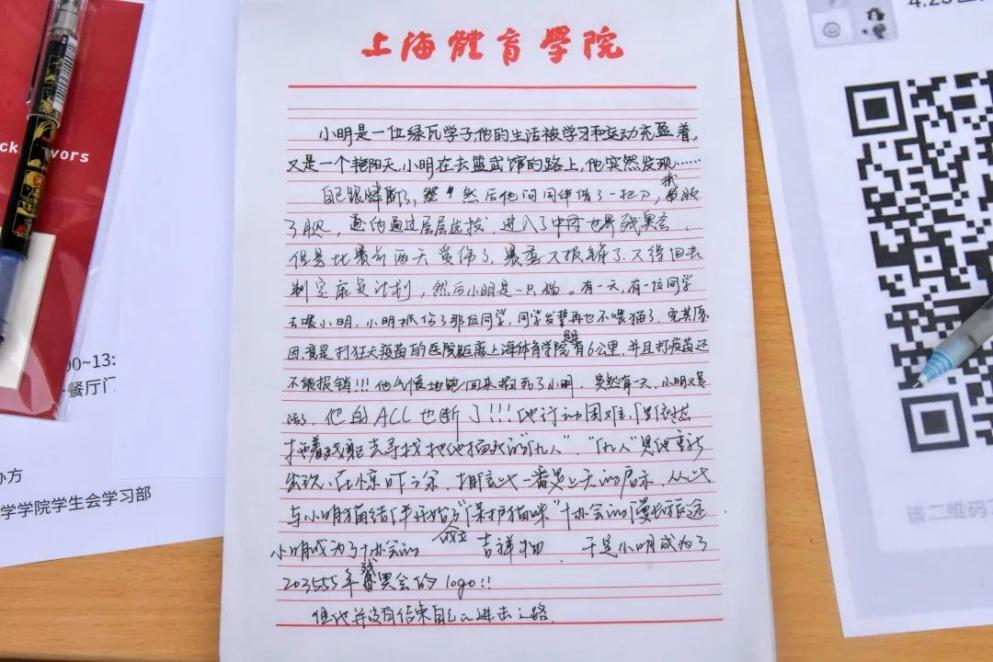 上海體育學院
小明是一位绿瓦学子,他的生活被学习和运动充盈着,
又是一个艳阳天,小明在去篮武馆的路上,他突然发现……
自己跟腱断了, 然后他问同伴借了一把刀,
了腿, 他通过层层选拔,进入了 世界残奥会,
但是比赛前两天受伤了, 不报销了,又得回去
制定康复计划,然后小明是一只猫。有一天,有一位同学
去喂小明,小明抓伤了那位同学,同学发誓再也不喂猫了,究其原
因,竟是打狂犬疫苗的医院距离上海体育学院有6公里,并且打疫苗还
不能报销!!!他 地跑回来掐死了小明,突然有一天,小明又复
活了,他的ACL也断了!!!他行动困难,
拖着残躯去寻找把他掐死的"仇人","仇人"见他重新
出现,在惊吓之余, 此一番是上天的启示,从此
与小明猫结伴开始了"保护猫咪"协会的漫长旅途
小明成为了协会的 吉祥物 于是小明成为了
203555年残奥会的logo!!
但他并没有结束自己的进击之路.
ck
vors
00~13:
餐厅门
办方
学学院学生会学习部
该二维码